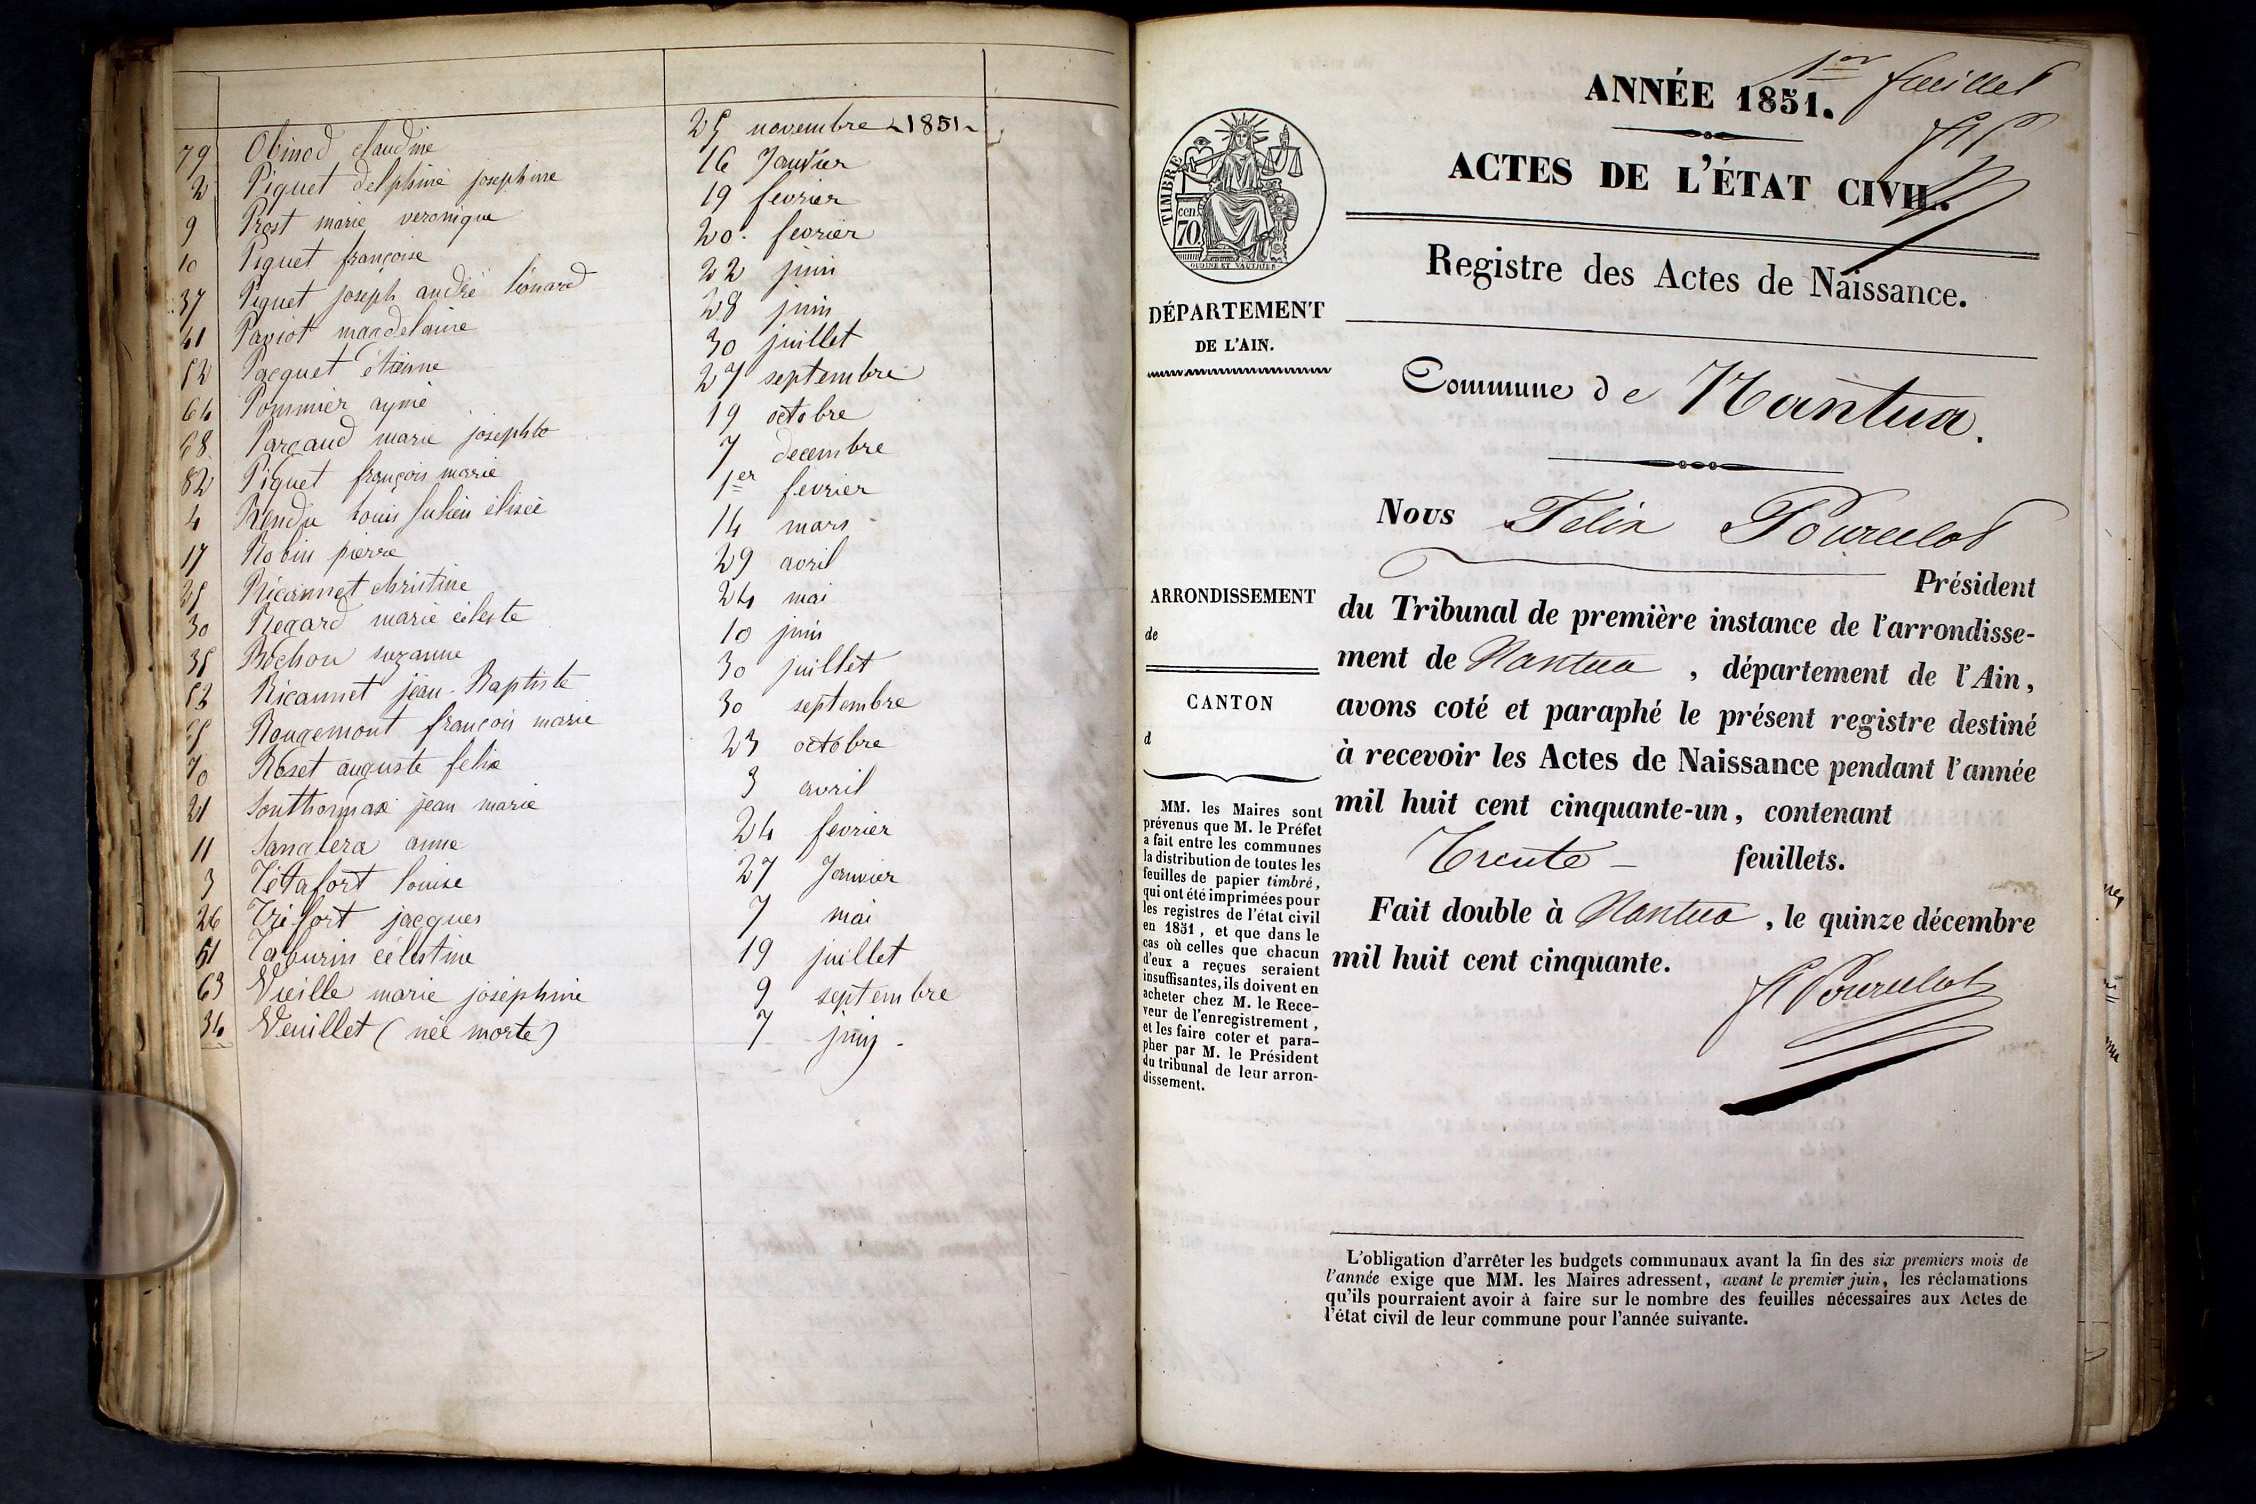 79 Obinod claudine 25 novembre 1851
2 Piquet delphine josephine 16 Janvier
9 Prost marie veronique 19 fevrier
10 Piquet françoise 20 fevrier
37 Piquet joseph andré léonard 22 juin
41 Paviot mandelaine 28 juin
52 Pacquet étienne 30 juillet
64 Pommier aymé 27 septembre
68 Parcaud marie josephte 19 octobre
82 Piquet françois marie 7 decembre
4 Rendu Louis Julien élisée 1er fevrier
17 Robin pierre 14 mars
25 Ricannet christine 29 avril
30 Regard marie céleste 24 mai
35 Rochon suzanne 10 juin
52 Ricannet jean-Baptiste 30 juillet
65 Rougemont françois marie 30 septembre
70 Roset auguste felix 23 octobre
21 Southonnax jean marie 3 avril
11 Sanglera anne 24 fevrier
3 Tétafort Louise 27 Janvier
26 Tréfort jacques 7 mai
51 Taburin célestine 19 juillet
63 Vieille marie joséphine 9 septembre
34 Veuillet (née morte) 7 juin
1er feuillet
ANNÉE 1851.
ACTES DE L'ÉTAT CIVIL.
Registre des Actes de Naissance.
TIMBRE
70 cen.
OUDINÉ ET VAUTHIER
DÉPARTEMENT
DE L'AIN.
Commune de Nantua.
ARRONDISSEMENT
de
CANTON
d
MM. les Maires sont
prévenus que M. le Préfet
a fait entre les communes
la distribution de toutes les
feuilles de papier timbré,
qui ont été imprimées pour
les registres de l'état civil
en 1851, et que dans le
cas où celles que chacun
d'eux a reçues seraient
insuffisantes, ils doivent en
acheter chez M. le Rece-
veur de l'enregistrement,
et les faire coter et para-
pher par M. le Président
du tribunal de leur arron-
dissement.
Nous Félix Pourcelot
Président
du Tribunal de première instance de l'arrondisse-
ment de Nantua, département de l'Ain,
avons coté et paraphé le présent registre destiné
à recevoir les Actes de Naissance pendant l'année
mil huit cent cinquante-un, contenant
Trente feuillets.
Fait double à Nantua, le quinze décembre
mil huit cent cinquante.
F Pourcelot
L'obligation d'arrêter les budgets communaux avant la fin des six premiers mois de
l'année exige que MM. les Maires adressent, avant le premier juin, les réclamations
qu'ils pourraient avoir à faire sur le nombre des feuilles nécessaires aux Actes de
l'état civil de leur commune pour l'année suivante.